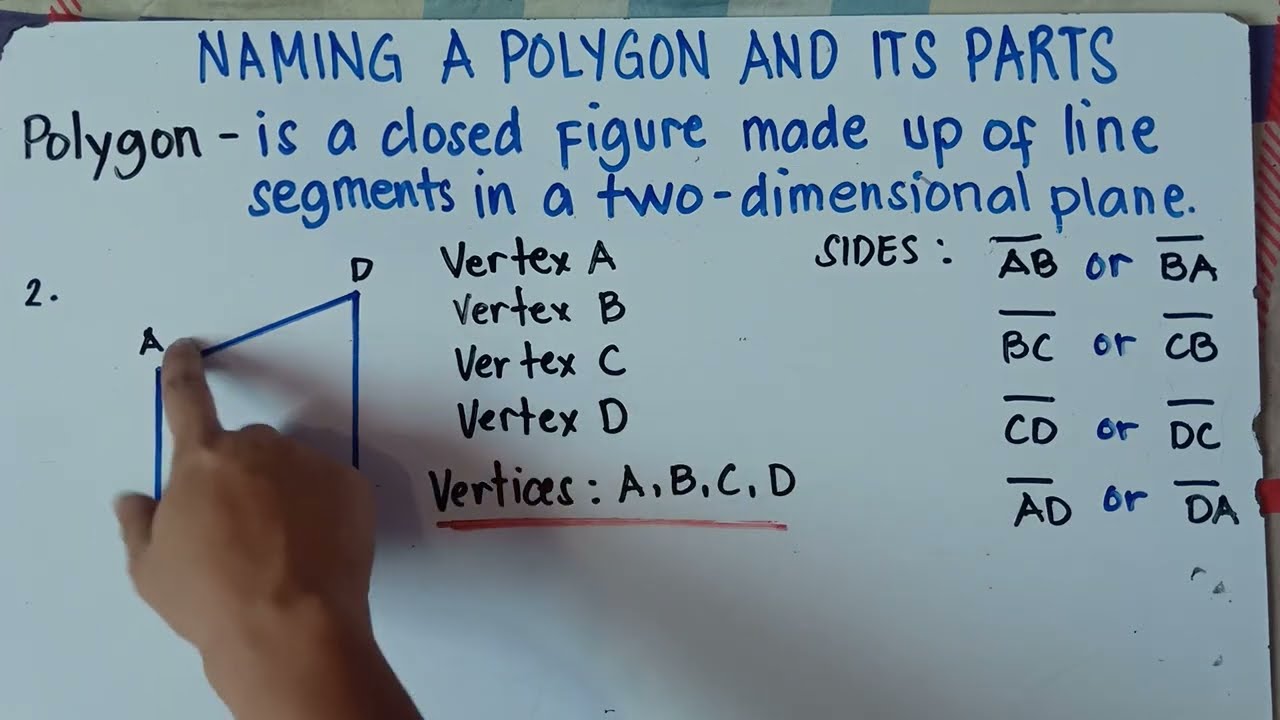 NAMING A POLYGON AND ITS PARTS
Polygon - is a closed figure made up of line
segments in a two-dimensional plane.
2.
A
D
Vertex A
Vertex B
Vertex C
Vertex D
Vertices : A, B, C, D
SIDES : A̅B̅ or B̅A̅
B̅C̅ or C̅B̅
C̅D̅ or D̅C̅
A̅D̅ or D̅A̅